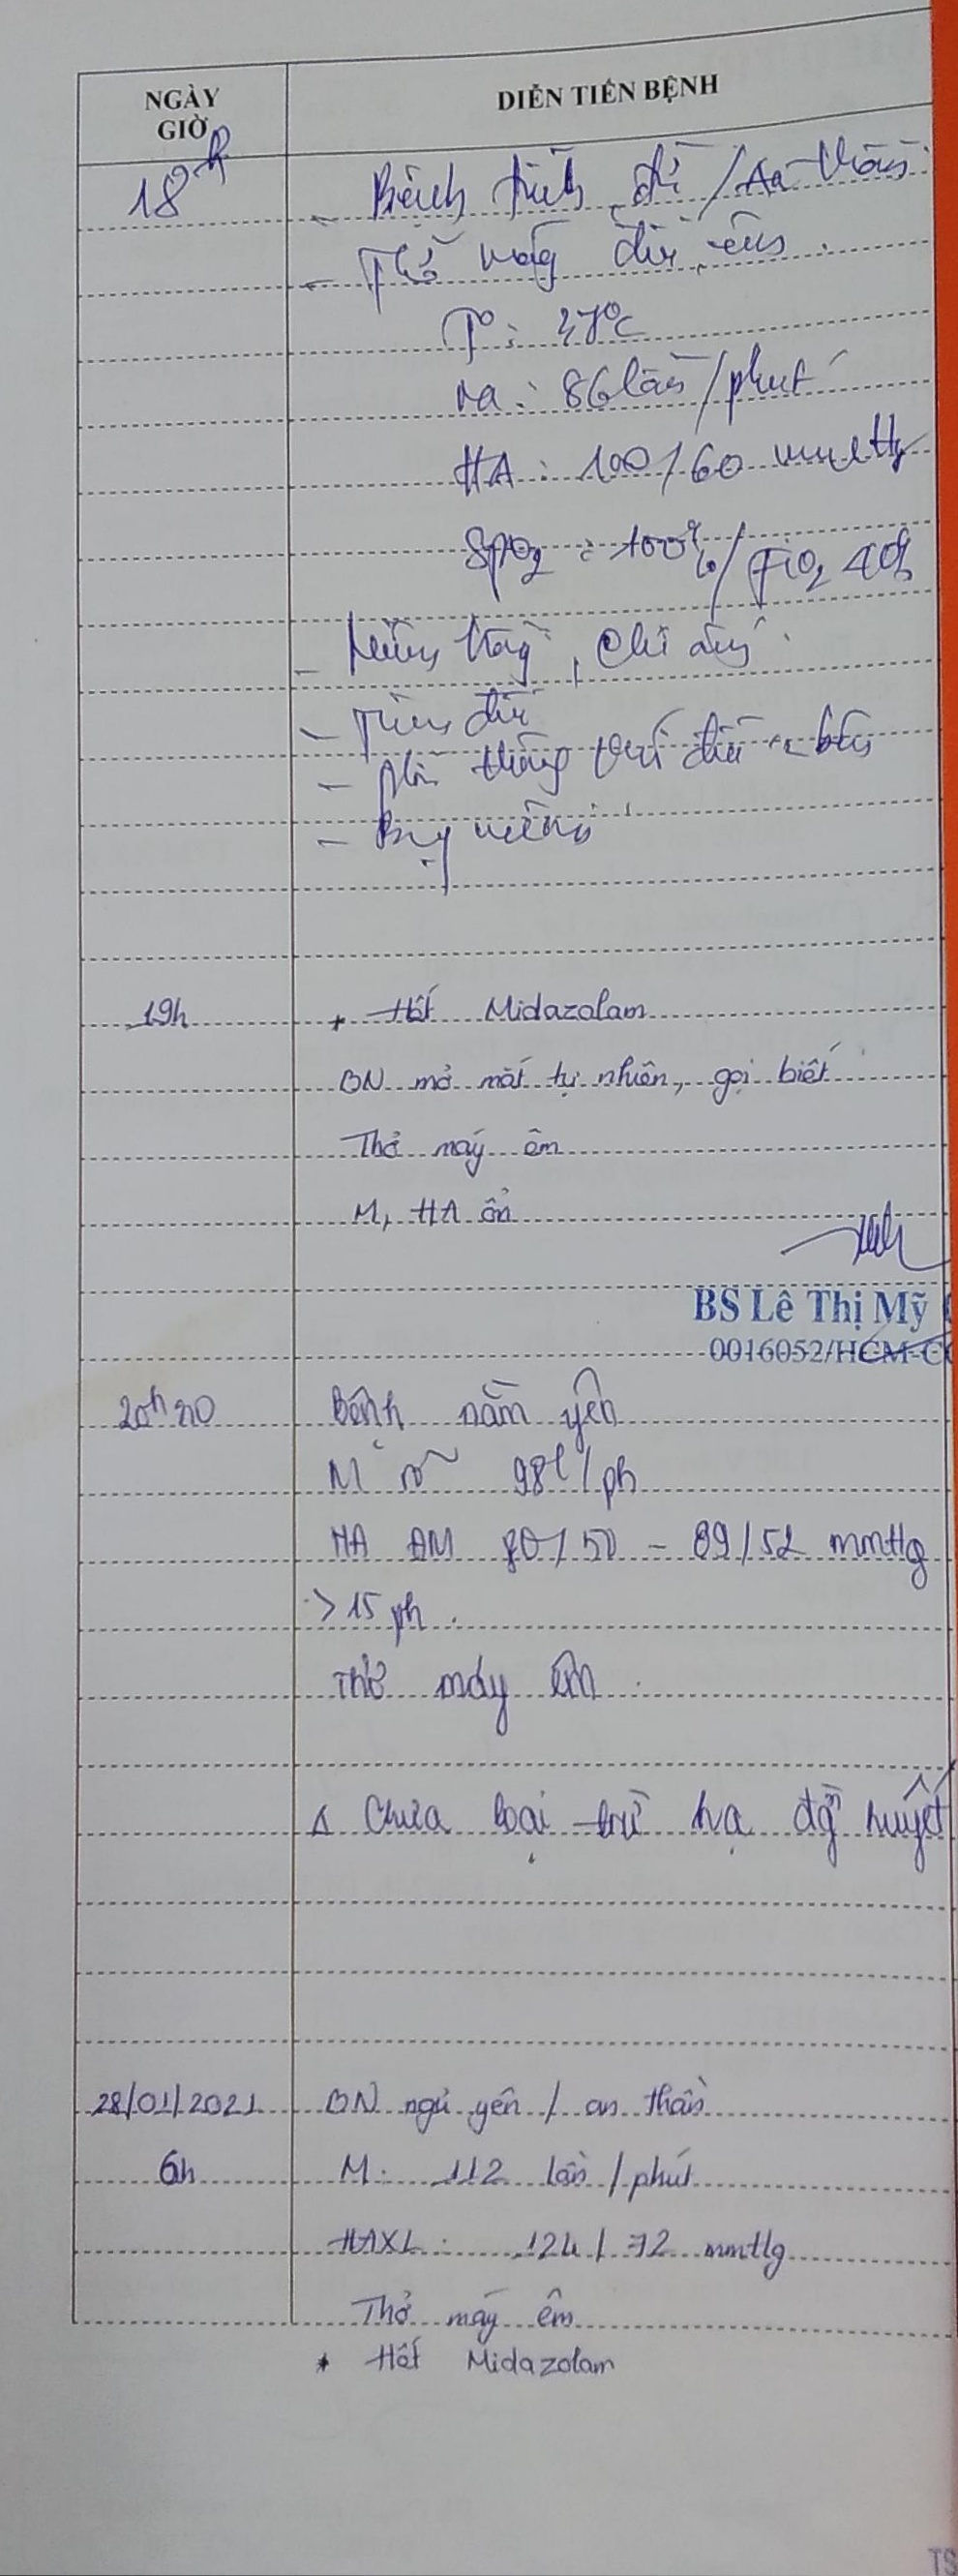 NGÀY
GIỜ
DIỄN TIẾN BỆNH
18h
- Bệnh tỉnh, đừ / An thần
- Thở máy đều, êm.
T°: 37°C
M: 86 lần/phút
HA: 100/60 mmHg
SpO2: 100%/ FiO2 40%
- Niêm hồng, chi ấm
- Tim đều
- Phổi thông khí đều 2 bên
- Bụng mềm
19h
* Hết Midazolam
BN mở mắt tự nhiên, gọi biết
Thở máy êm
M, HA ổn
BS Lê Thị Mỹ
0016052/HCM-CC
20h20
Bệnh nằm yên
M rõ 98l/ph
HA ĐM 80/50 - 89/52 mmHg
> 15 ph.
Thở máy êm
Δ Chưa loại trừ hạ đg huyết
28/01/2021
BN ngủ yên / an thần
6h
M: 112 lần/phút
HAXL: 124/72 mmHg
Thở máy êm
* Hết Midazolam
TS